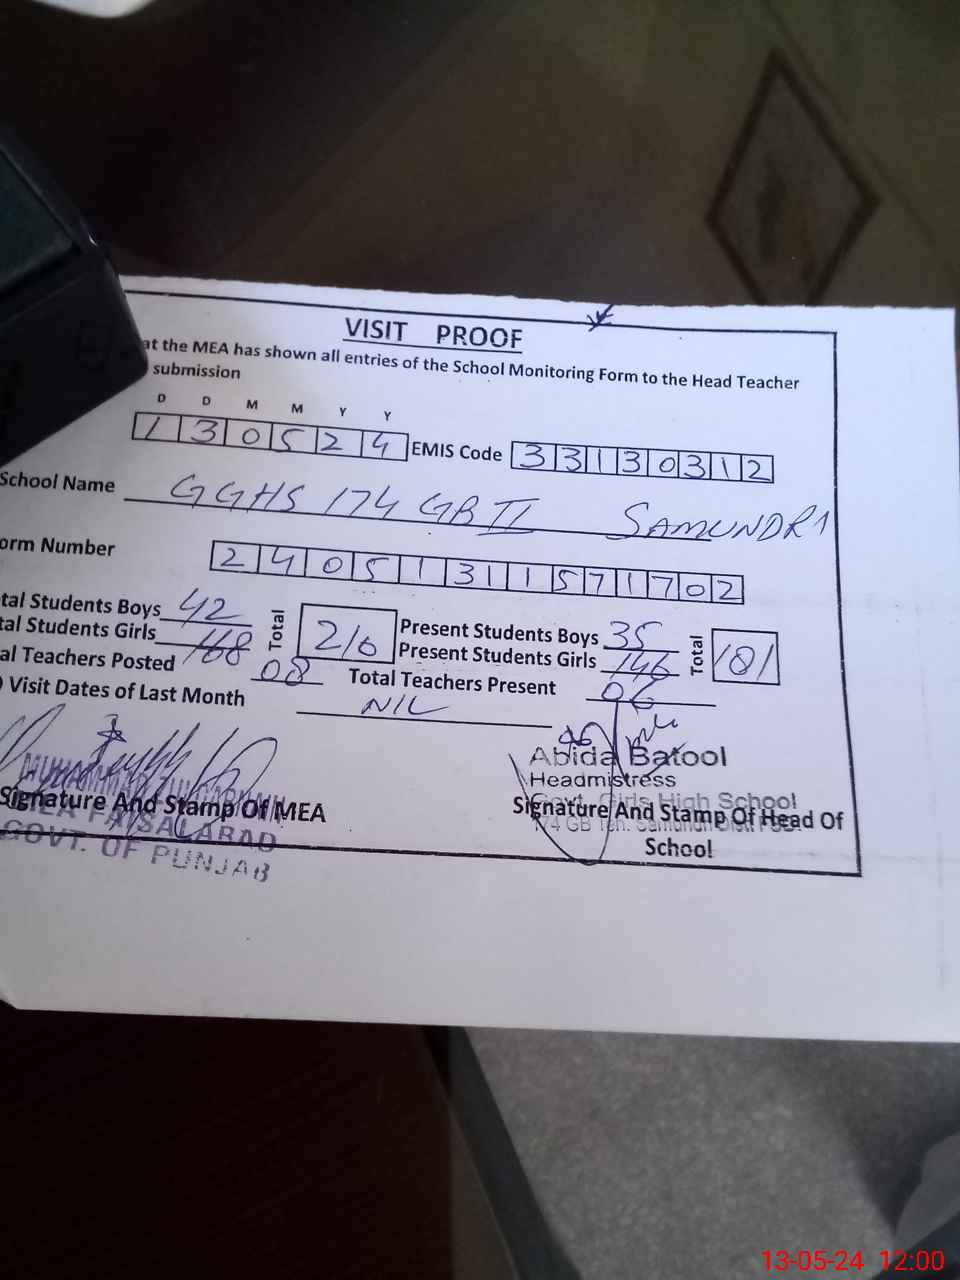 VISIT PROOF
at the MEA has shown all entries of the School Monitoring Form to the Head Teacher
submission
D D M M Y Y
1 3 0 5 2 4 EMIS Code 3 3 1 3 0 3 1 2
School Name GGHS 174 GB II SAMUNDRI
orm Number 2 4 0 5 1 3 1 1 5 7 1 7 0 2
tal Students Boys 42 Total 210 Present Students Boys 35 Total 181
tal Students Girls 168 Present Students Girls 146
al Teachers Posted 08 Total Teachers Present 06
) Visit Dates of Last Month NIL
Abida Batool
Headmistress
Govt. Girls High School
174 GB Teh. Samundri
MUHAMMAD
Signature And Stamp Of MEA
Signature And Stamp Of Head Of
School
MEA FAISALABAD
GOVT. OF PUNJAB
13-05-24 12:00